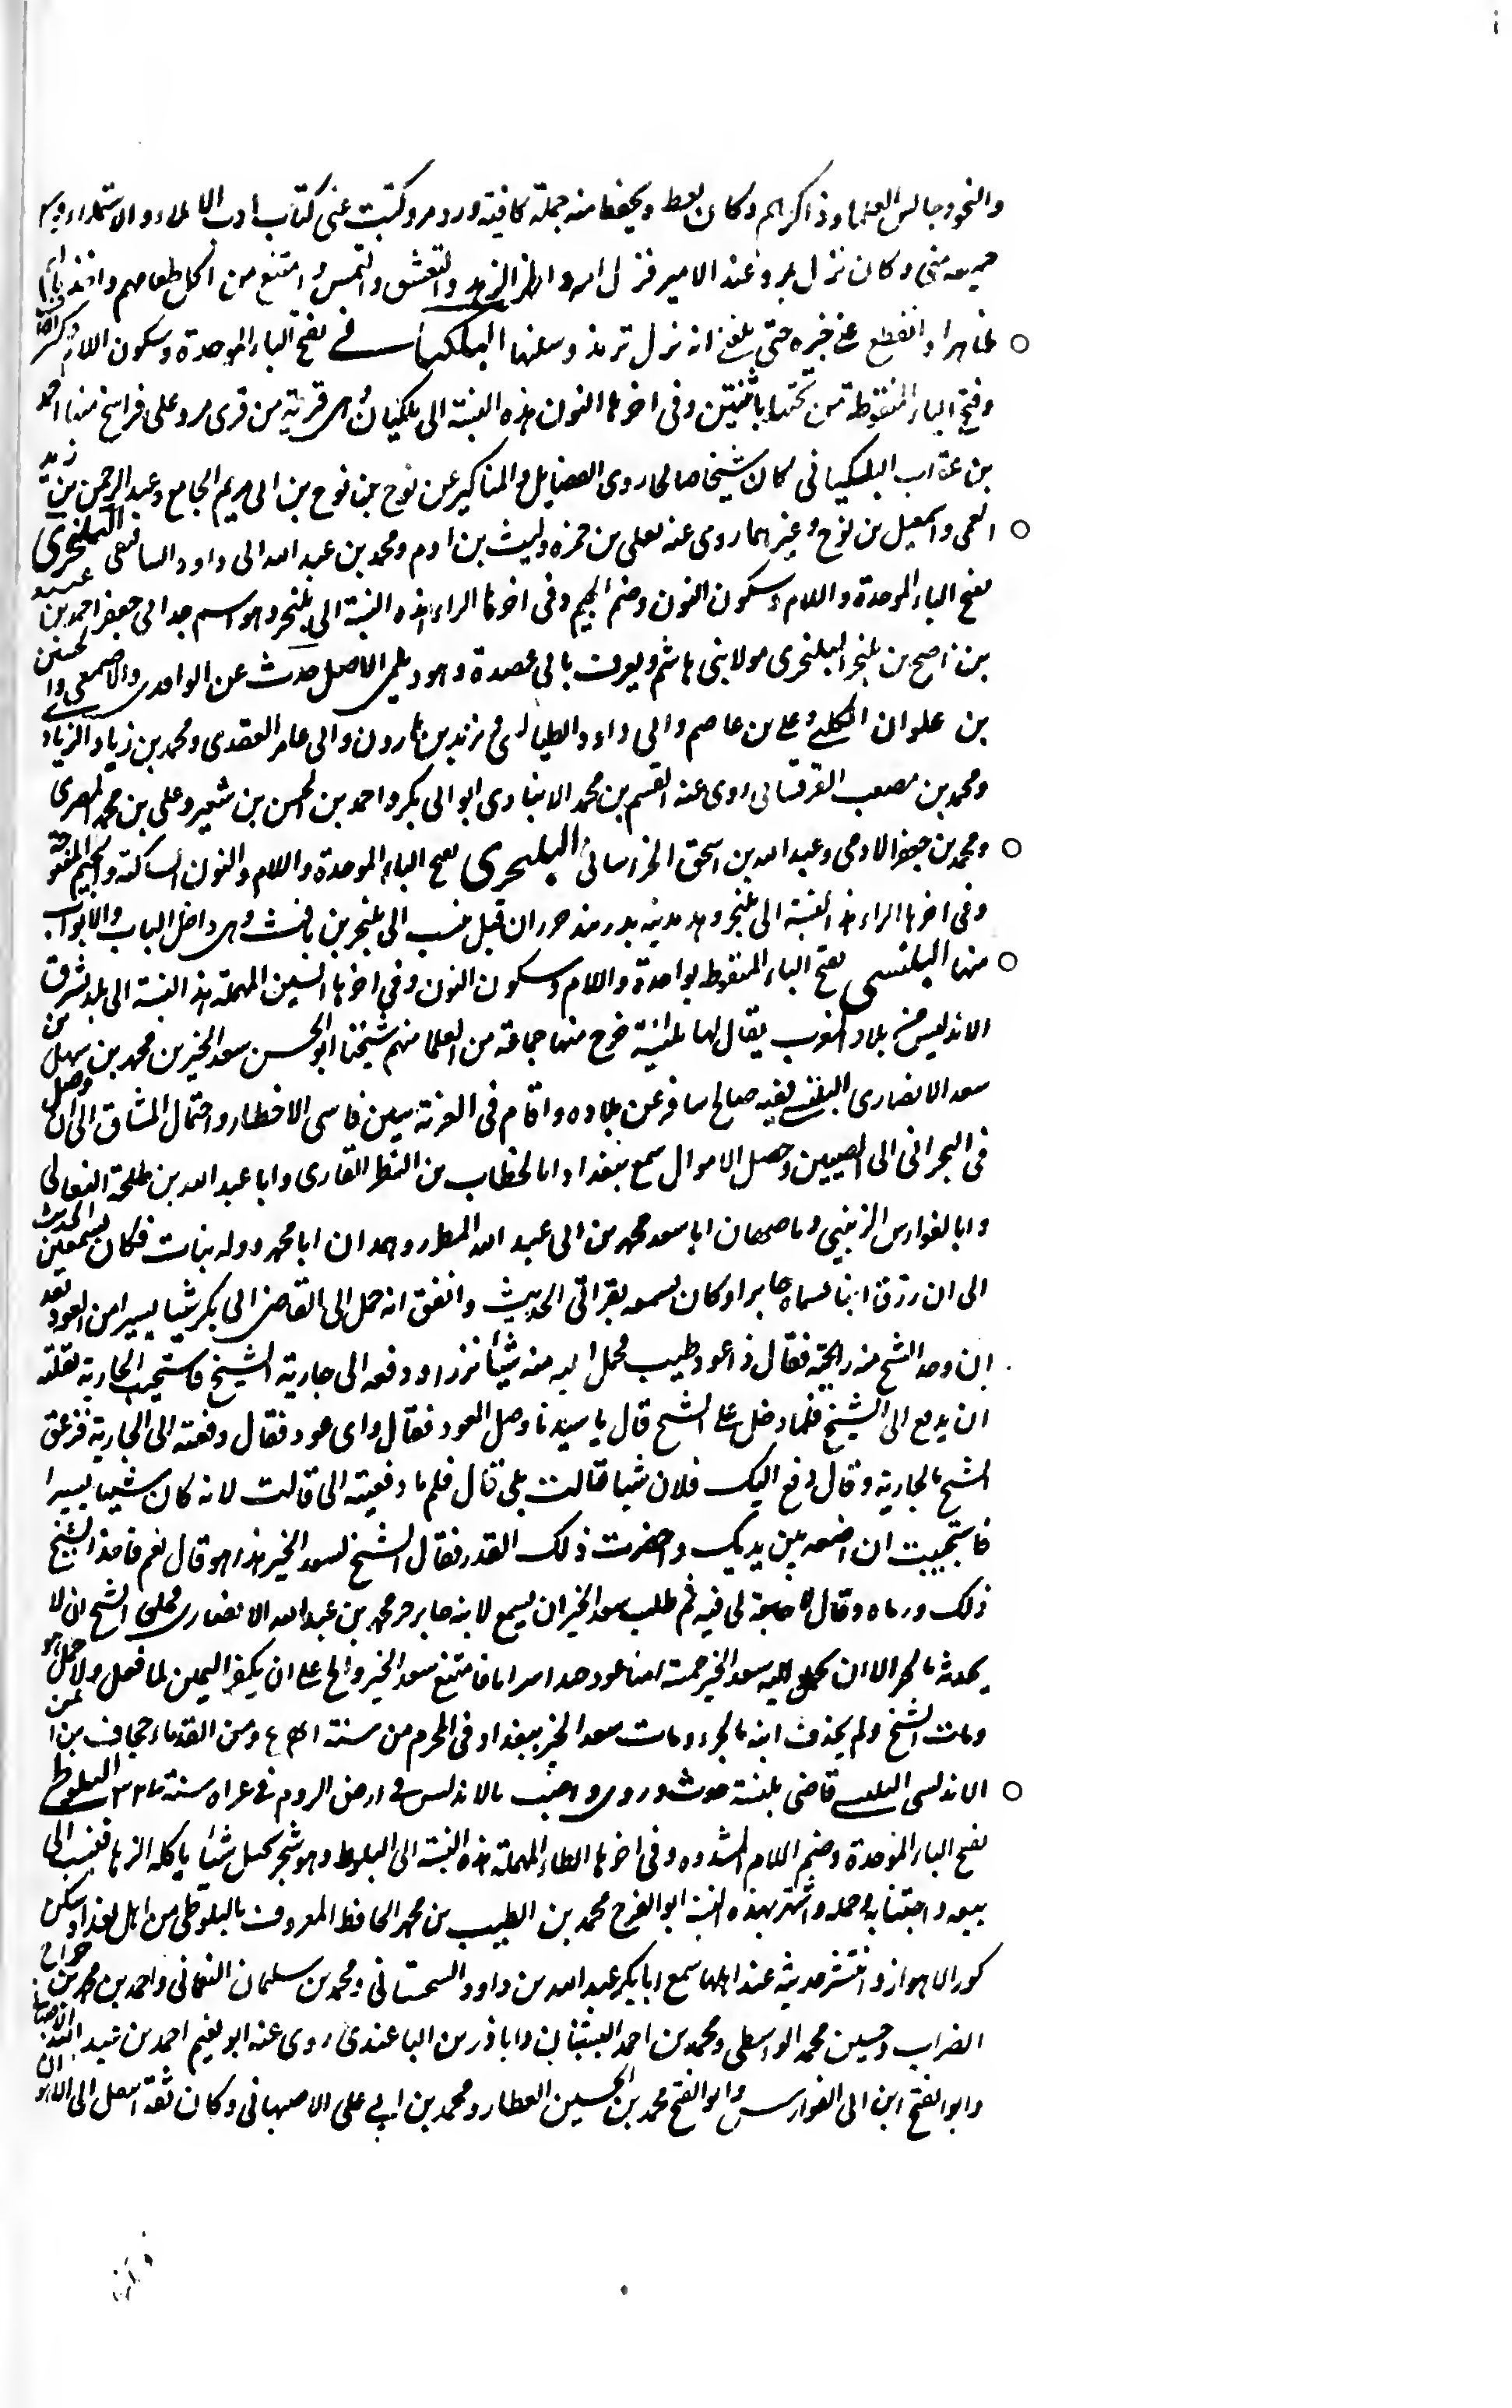 والنحو وجالس العلما وذاكرهم وكان يعط ويحفظ منه جملة كافية ورد مرو كتبت عنى كتاب ادب الاملاء والاستملاء وسمع
جميعه منى وكان نزل بمرو عند الامير فنزل امره اظهر الزهد والتعشق والتمس و امتنع من اكل طعامهم واخذ
ظاهرا وانقطع عنى خبره حتى بلغنى انه نزل ترمذ وسكنها البلكياني بفتح الباء الموحدة وسكون اللام وكسر الكاف
وفتح الياء المنقوطة من تحتها باثنتين وفى اخرها النون هذه النسبة الى بلكيان وهى قرية من قرى مرو على فراسخ منها احمد
بن عتاب البلكيانى كان شيخا صالحا روى الفضايل والمناكير عن نوح بن نوح بن ابى مريم الجامع وعبد الرحمن بن زيد
العمى واسمعيل بن نوح وغيرهما روى عنه يعلى بن حمزه وليث بن ادم ومحمد بن عبد الله ابى داود السانعى البلنجرى
بفتح الباء الموحدة واللام وسكون النون وضم الجيم وفى اخرها الراء هذه النسبة الى بلنجر وهو اسم جد ابى جعفر احمد بن عبيد
بن ناصح بن بلنجر البلنجرى مولا بنى هاشم ويعرف بابى عصيدة وهو ديلمى الاصل حدث عن الواقدى والاصمعى والحسين
بن علوان الكلبى وعلى بن عاصم وابى داود الطيالسى ويزيد بن هارون وابى عامر العقدى ومحمد بن زياد الزيادى
ومحمد بن مصعب القرقسانى روى عنه القسم بن محمد الانبارى ابو ابى بكر واحمد بن الحسن بن شهير وعلى بن محمد المصرى
ومحمد بن جعفر الادمى وعبد الله بن اسحق الخراسانى البلنجرى بفتح الباء الموحدة واللام والنون الساكنة والجيم المفتوحة
وفى اخرها الراء هذه النسبة الى بلنجر وهى مدينه بدربند خزران قيل نسب الى بلنجر بن يافث وهى داخل الباب والابواب
منها البلنسى بفتح الباء المنقوطة بواحدة واللام وسكون النون وفي اخرها السين المهملة هذه النسبة الى بلد بشرق
الاندلس من بلاد المغرب يقال لها بلنسية خرج منها جماعة من العلما منهم شيخنا ابو الحسن سعد الخير بن محمد بن سهل بن
سعد الانصارى البلنسى فقيه صالح سافر عن بلاده واقام فى الغربة سنين وقاسى الاخطار واحتمال المشاق الى ان وصل
فى البحر اتى الى الصين وحصل الاموال سمع ببغداد ابا الخطاب بن النظر القارى وابا عبد الله بن طلحة النعالى
وابا الفوارس الزينبي وباصبهان ابا سعد محمد بن ابى عبد الله المطرز وبهمدان ابا محمد وولد بنات فكان يسمعهن الحديث
الى ان رزق ابنا فسماه جابرا وكان يسمعه بقراتى الحديث واتفق انه حمل الى القاضى ابى بكر شيئا يسيرا من العود بقدر
ان وجد الشيخ منه رايحة فقال ذا عود طيب فحمل اليه منه شيئا نزرا ودفعه الى جارية الشيخ فاستحيت الجارية لقلته
ان يدفع الى الشيخ فلما دخل على الشيخ قال يا سيدنا وصل العود فقال واى عود فقال دفعته الى الجارية فزعق
الشيخ بالجارية وقال دفع اليك فلان شيا قالت بلى قال فلم ما دفعيته الى قالت لانه كان شيئا يسيرا
فاستحييت ان اضعه بين يديك واحضرت ذلك القدر فقال الشيخ لسعد الخير هذا هو قال نعم فاخذ الشيخ
ذلك ورماه وقال لا حاجة لى فيه ثم طلب سعد الخير ان يسمع لابنه جابر جزء محمد بن عبد الله الانصارى فحلف الشيخ ان لا
يحدثه بالجزء الا ان يحمل اليه سعد الخير خمسة امنا عود فامتنع سعد الخير والح على ان يكفر اليمين لما فعل ولا حمل هو
ومات الشيخ ولم يحدث ابنه بالجزء ومات سعد الخير ببغداد فى المحرم من سنة ومن القدما جحاف بن يمن
الاندلسى البلنسى قاضى بلنسة حدث وروى وحسب بالاندلس فى ارض الروم فى غزاه سنة البلوطى
بفتح الباء الموحدة وضم اللام المشددة وفى اخرها الطاء المهملة هذه النسبة الى البلوط وهو شجر يحمل شيئا ياكله الزهاد فنسب الى
بيعه واجتنابه وحمله واشتهر بهذه النسبة ابو الفرج محمد بن الطيب بن محمد الحافظ المعروف بالبلوطى من اهل بغداد سكن
كور الاهواز وانتشر حديثه عند اهلها سمع ابا بكر عبد الله بن داود السجستانى ومحمد بن سليمان النعمانى واحمد بن محمد بن جراح
الضراب وحسين محمد الواسطى ومحمد بن احمد البستنبان وابا ذر بن الباغندى روى عنه ابو نعيم احمد بن عبد الله الاصبهانى
وابو الفتح ابن ابى الفوارس وابو الفتح محمد بن الحسين العطار ومحمد بن ابي على الاصبهانى وكان ثقة انتقل الى الاهواز